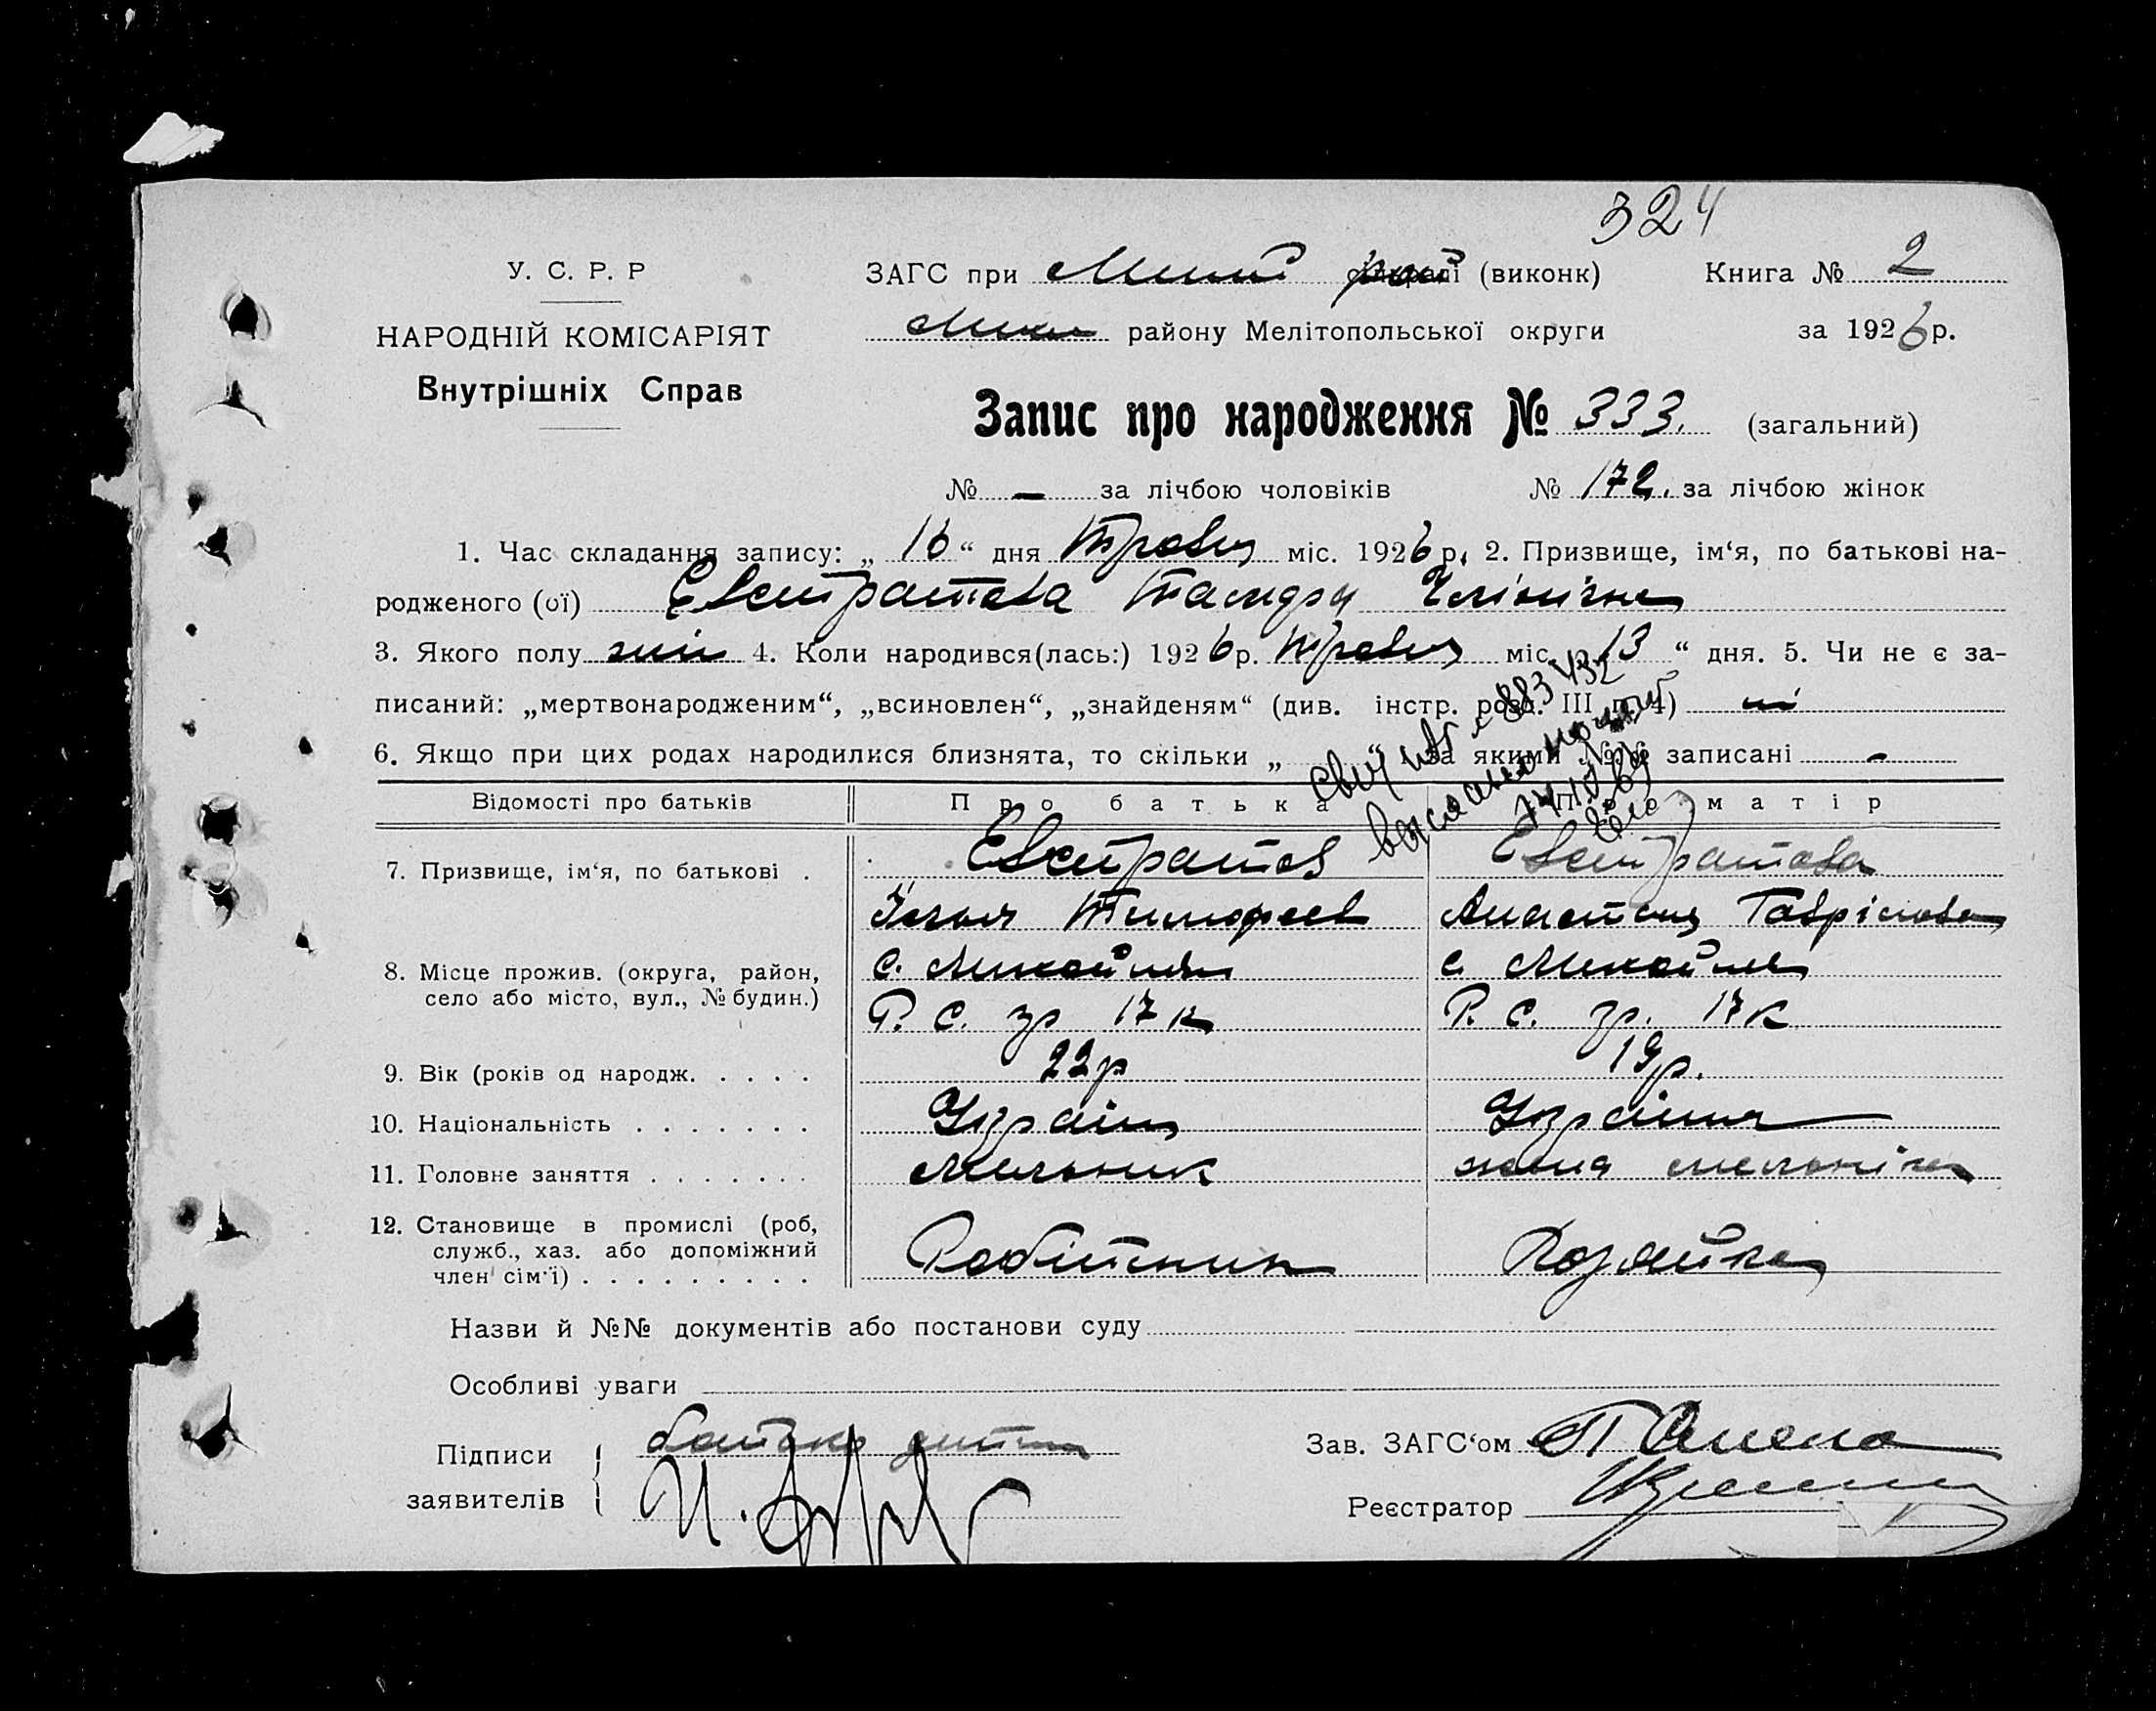 324
У. С. Р. Р
НАРОДНІЙ КОМІСАРІЯТ
Внутрішніх Справ
ЗАГС при (виконк) Книга № 2
району Мелітопольської округи за 1926 р.
Запис про народження № 333. (загальний)
№ — за лічбою чоловіків № 172. за лічбою жінок
1. Час складання запису: „ 16 “ дня Травня міс. 1926 р. 2. Призвище, ім‘я, по батькові на-
родженого (ої) Евстратова Тамара Іллінічна
3. Якого полу жін 4. Коли народився(лась:) 1926 р. Травня міс. „ 13 “ дня. 5. Чи не є за-
писаний: „мертвонародженим“, „всиновлен“, „знайденям“ (див. інстр. розд. III п. 4) ні
6. Якщо при цих родах народилися близнята, то скільки „ “ за якими №№ записані -
Відомості про батьків Про батька Про матір
7. Призвище, ім‘я, по батькові . Евстратов Евстратова
Ілья Тимофеев Анастасия Гаврілова
8. Місце прожив. (округа, район, с. с.
село або місто, вул., № будин.) Р. С. зр 17 к Р. С. зр. 17 к
9. Вік (років од народж. . . . . 22 р 19 р.
10. Національність . . . . . . . Україн Українка
11. Головне заняття . . . . . . . Мельник жена мельніка
12. Становище в промислі (роб,
служб., хаз. або допоміжний Робітник Хозяйка
член сім‘ї) . . . . . . . . .
Назви й №№ документів або постанови суду
Особливі уваги
Підписи батько дитини Зав. ЗАГС‘ом
заявителів Реєстратор